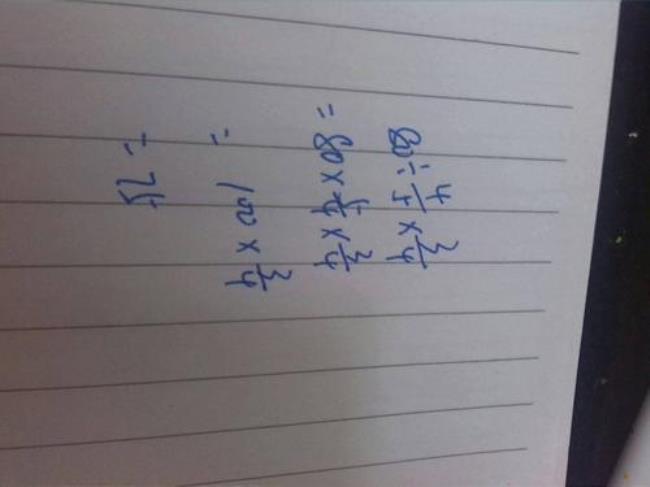 80÷4/5×3/4
=80×5/4×3/4
=100×3/4
=75